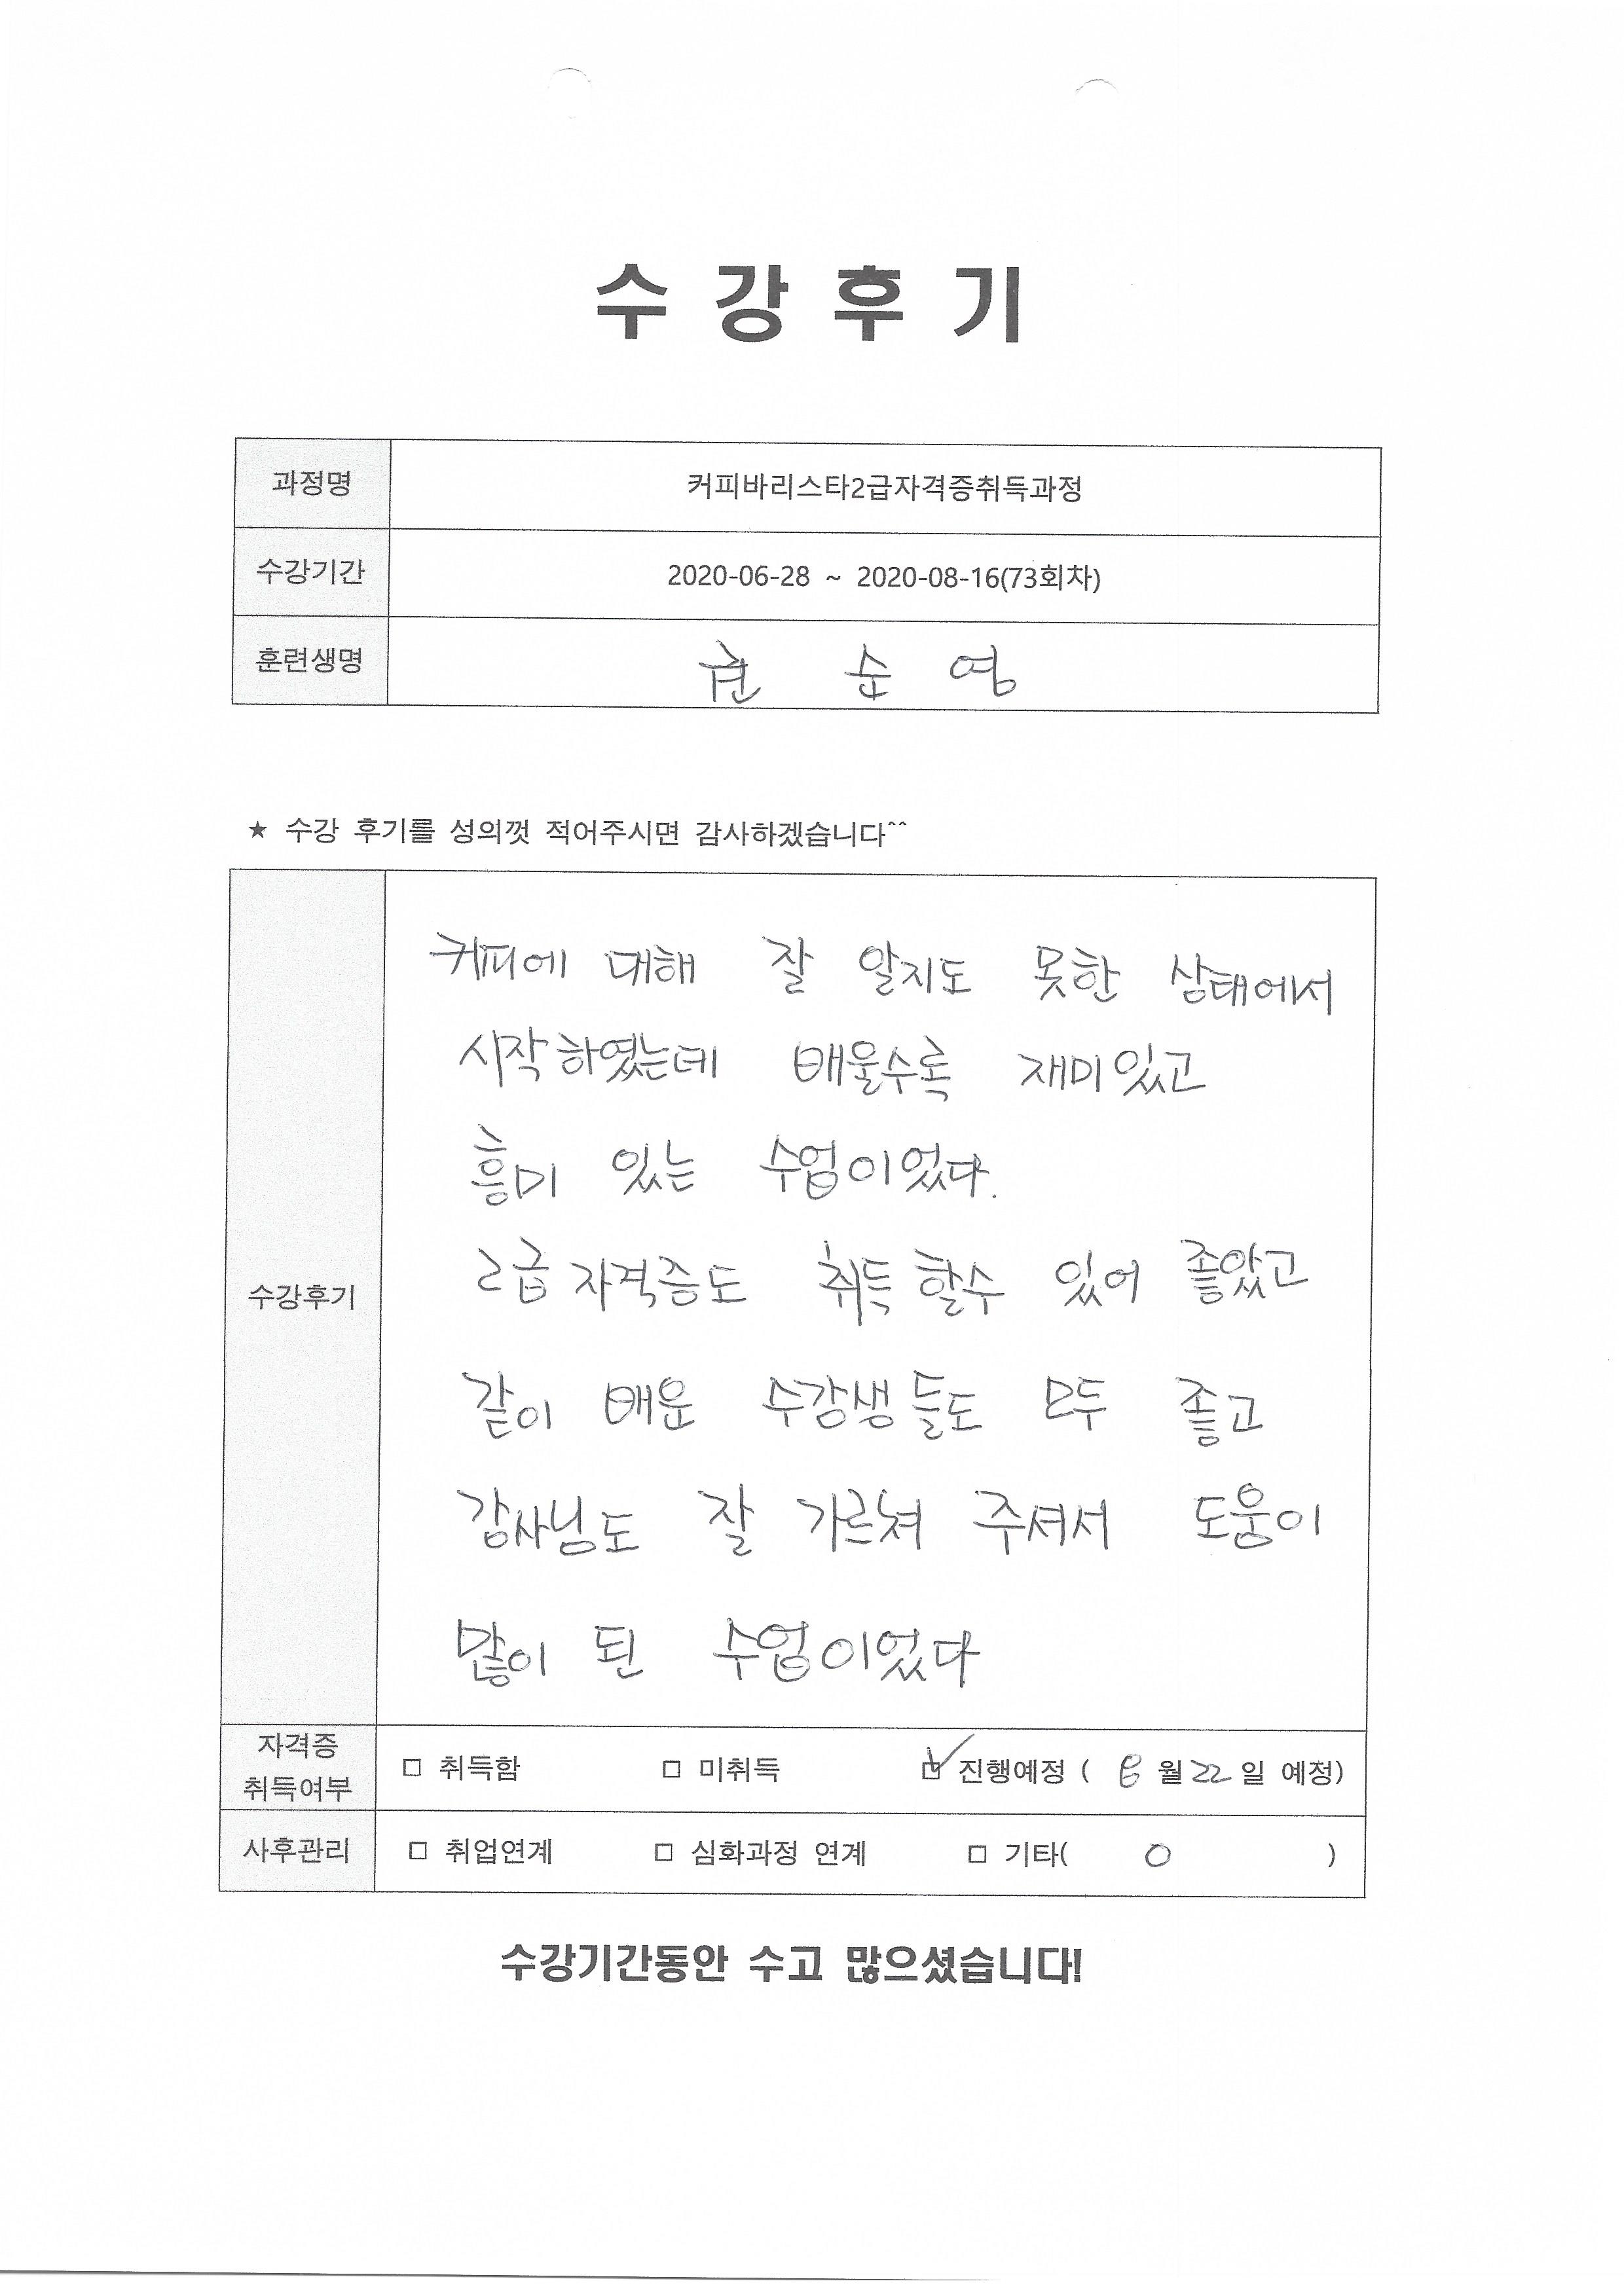 수 강 후 기
과정명 커피바리스타2급자격증취득과정
수강기간 2020-06-28 ~ 2020-08-16(73회차)
훈련생명 권 순 영
★ 수강 후기를 성의껏 적어주시면 감사하겠습니다^^
수강후기
커피에 대해 잘 알지도 못한 상태에서
시작하였는데 배울수록 재미있고
흥미 있는 수업이었다.
2급 자격증도 취득 할수 있어 좋았고
같이 배운 수강생들도 모두 좋고
강사님도 잘 가르쳐 주셔서 도움이
많이 된 수업이었다
자격증
취득여부
□ 취득함 □ 미취득 ☑ 진행예정 ( 8 월 22 일 예정)
사후관리 □ 취업연계 □ 심화과정 연계 □ 기타( O )
수강기간동안 수고 많으셨습니다!